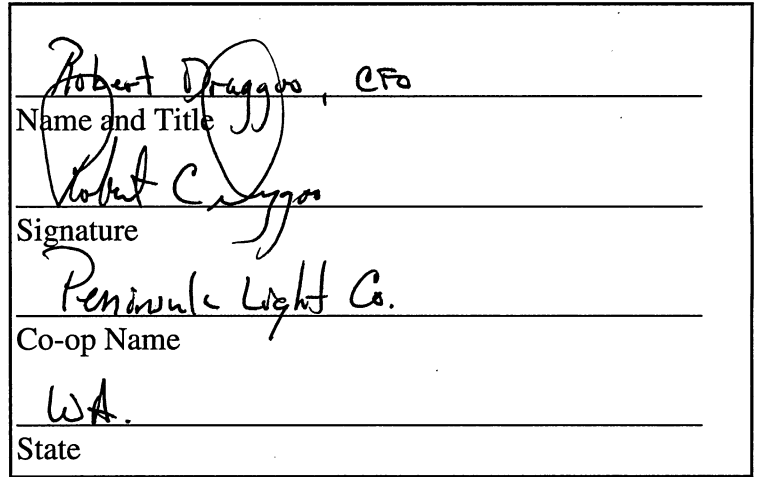 Robert Draggoo, CFO
Name and Title
Robert C Draggoo
Signature
Peninsula Light Co.
Co-op Name
WA.
State